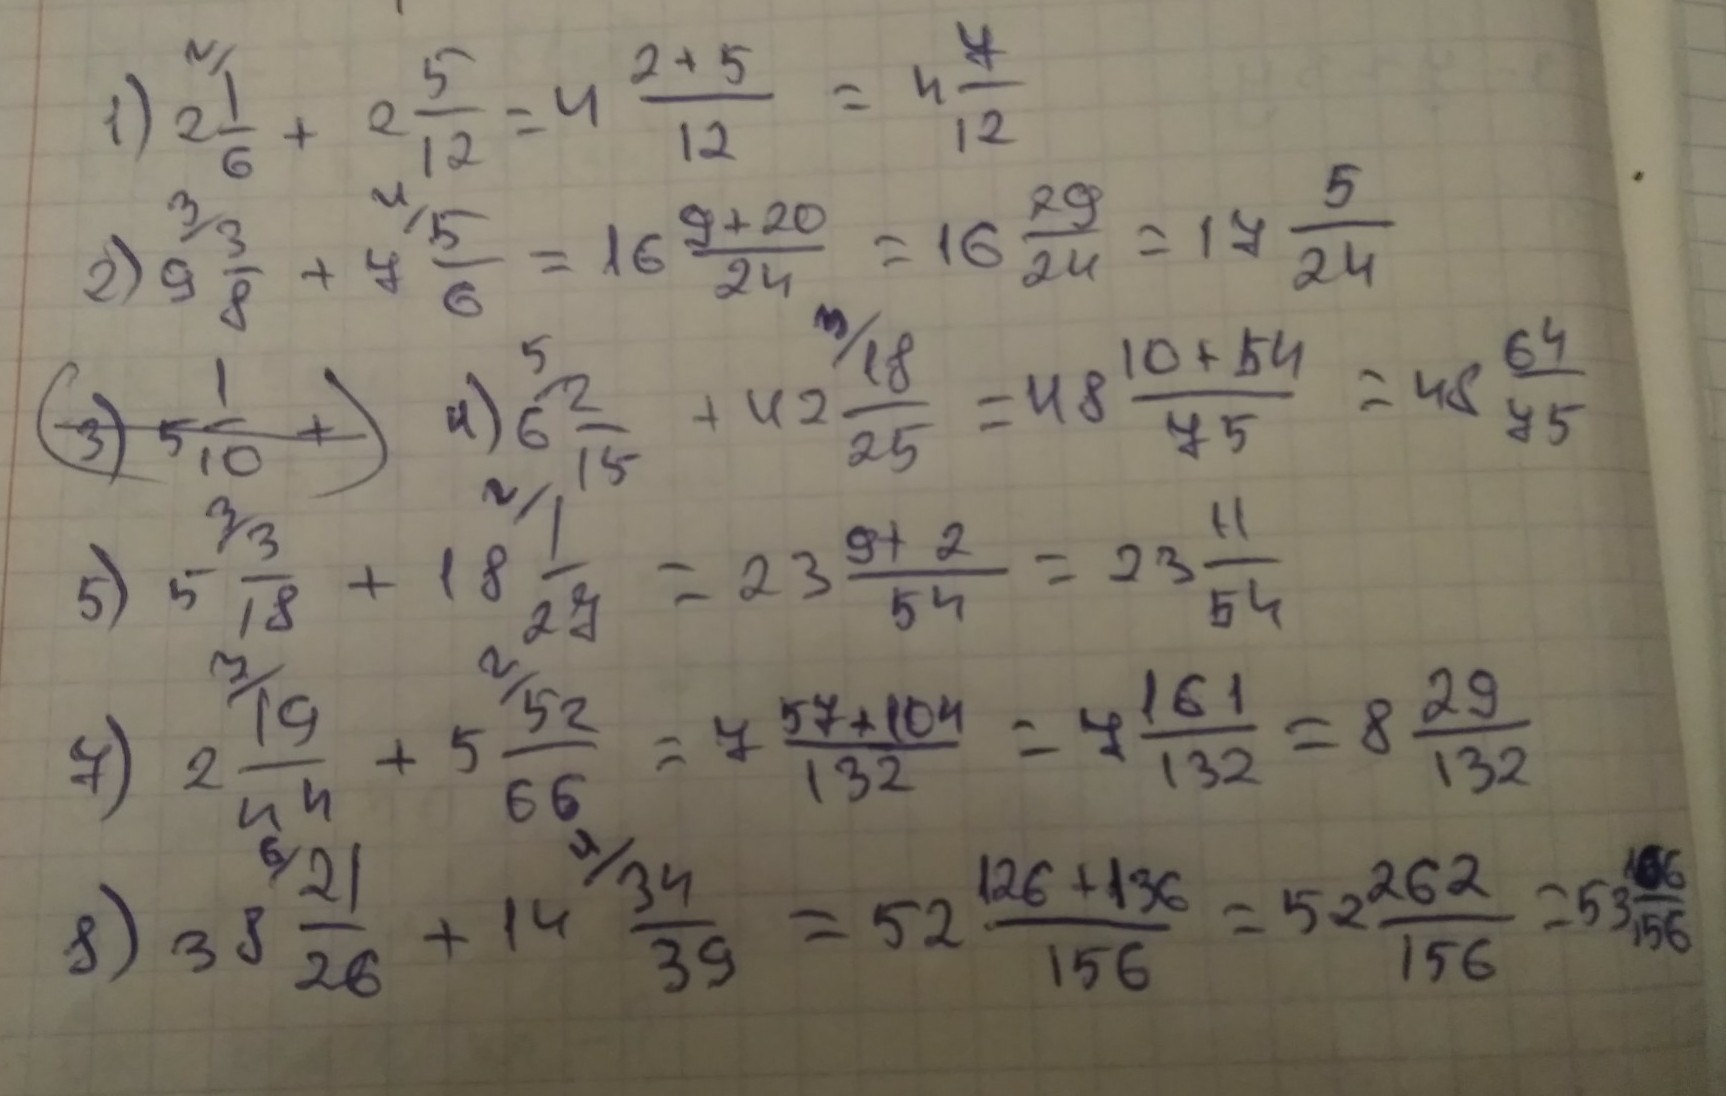 1) 2 2/ 1/6 + 2 5/12 = 4 (2+5)/12 = 4 7/12
2) 9 3/ 3/8 + 7 4/ 5/6 = 16 (9+20)/24 = 16 29/24 = 17 5/24
(3) 5 1/10 + ) 4) 6 5 2/15 + 42 3/ 18/25 = 48 (10+54)/75 = 48 64/75
5) 5 3/ 3/18 + 18 2/ 1/27 = 23 (9+2)/54 = 23 11/54
7) 2 3/ 19/44 + 5 2/ 52/66 = 7 (57+104)/132 = 7 161/132 = 8 29/132
8) 38 6/ 21/26 + 14 34/39 = 52 (126+136)/156 = 52 262/156 = 53 106/156